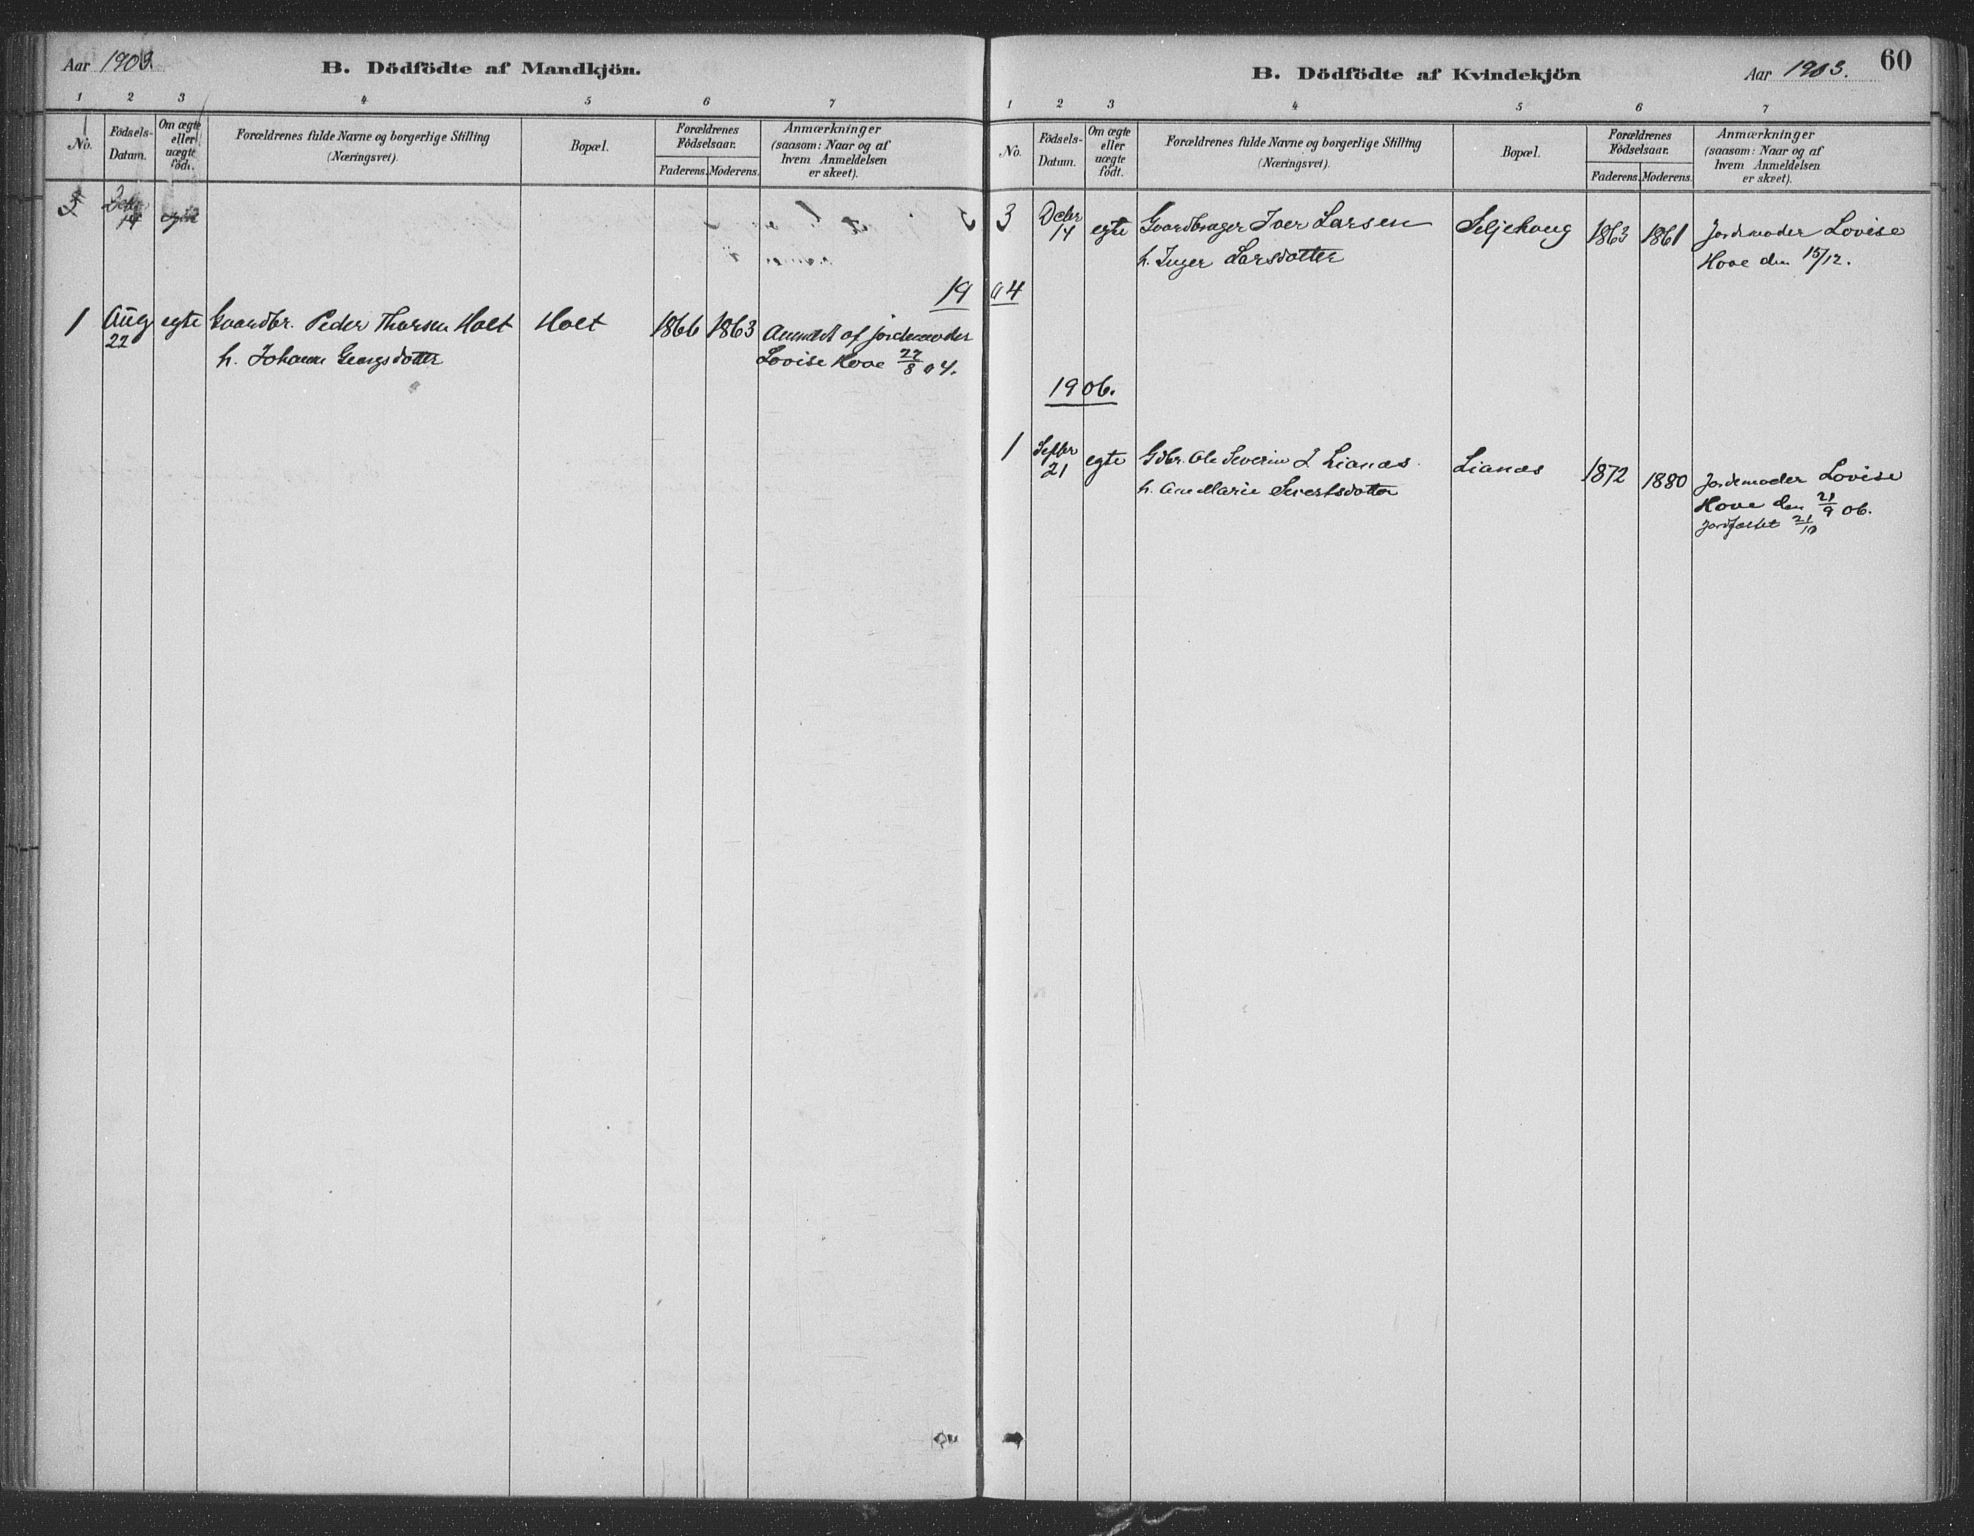 Aar 1903.
B. Dödfödte af Mandkjön.
1 2 3 4 5 6 7
No.
Födsels-Datum.
Om ægte eller uægte födt.
Forældrenes fulde Navne og borgerlige Stilling
(Næringsvei).
Bopæl.
Forældrenes Födselsaar.
Faderens. Moderens.
Anmærkninger
(saasom: Naar og af
hvem Anmeldelsen
er skeet).
3 Dcbr 14 egte
19
1 Aug 22 egte Gaardbr. Peder Thorsen Holt Holt 1866 1863 Anmeldt af jordemoder
h. Johanne Georgsdotter Lovise Hove 22/8 04.
60
B. Dödfödte af Kvindekjön
Aar 1903.
1 2 3 4 5 6 7
No.
Födsels-Datum.
Om ægte eller uægte födt.
Forældrenes fulde Navne og borgerlige Stilling
(Næringsvei).
Bopæl.
Forældrenes Födselsaar.
Faderens. Moderens.
Anmærkninger
(saasom: Naar og af
hvem Anmeldelsen
er skeet).
3 Dcbr 14 egte Gaardbruger Iver Larsen Seljehaug 1863 1861 Jordemoder Lovise
h. Inger Larsdotter Hove den 15/12.
04
1906.
1 Septbr 21 egte Gdbr. Ole Severin L Lianæs. Lianæs 1872 1880 Jordemoder Lovise
h. Ane Marie Sivertsdotter Hove den 21/9 06.
Jordfæstet 21/10